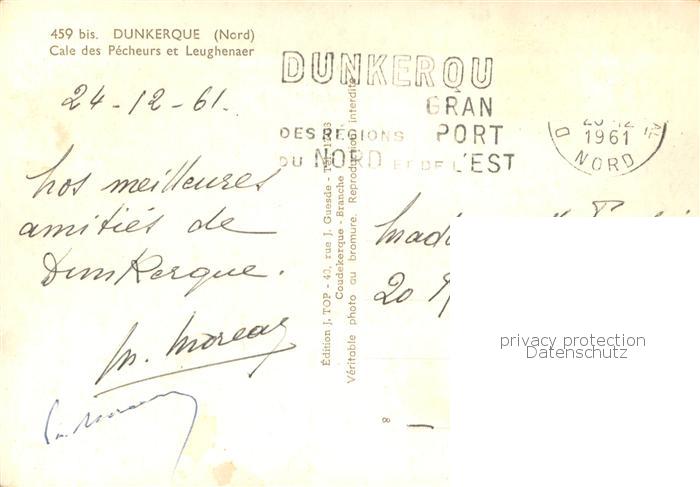 459 bis. DUNKERQUE (Nord)
Cale des Pêcheurs et Leughenaer
24-12-61.
DUNKERQU
GRAN
DES RÉGIONS PORT
DU NORD ET DE L'EST
1961
D
NORD
nos meilleures
amitiés de
Dunkerque.
m. Moreau
Édition J. TOP - 40, rue J. Guesde - Tél.
Coudekerque-Branche
Véritable photo au bromure. Reproduction interdite
20
8
privacy protection
Datenschutz